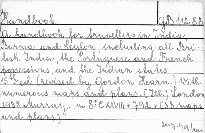 Handbook
A handbook for travellers in India,
Burma and Ceylon, including all Bri-
tish India, the Portuguese and French
possessions, and the Indian states.
15th ed. (revised by Gordon Hearn.) With
numerous maps and plans. (Ill.) London
1938. Murray. in 8° XXVIII + 792 (maps
and plans)